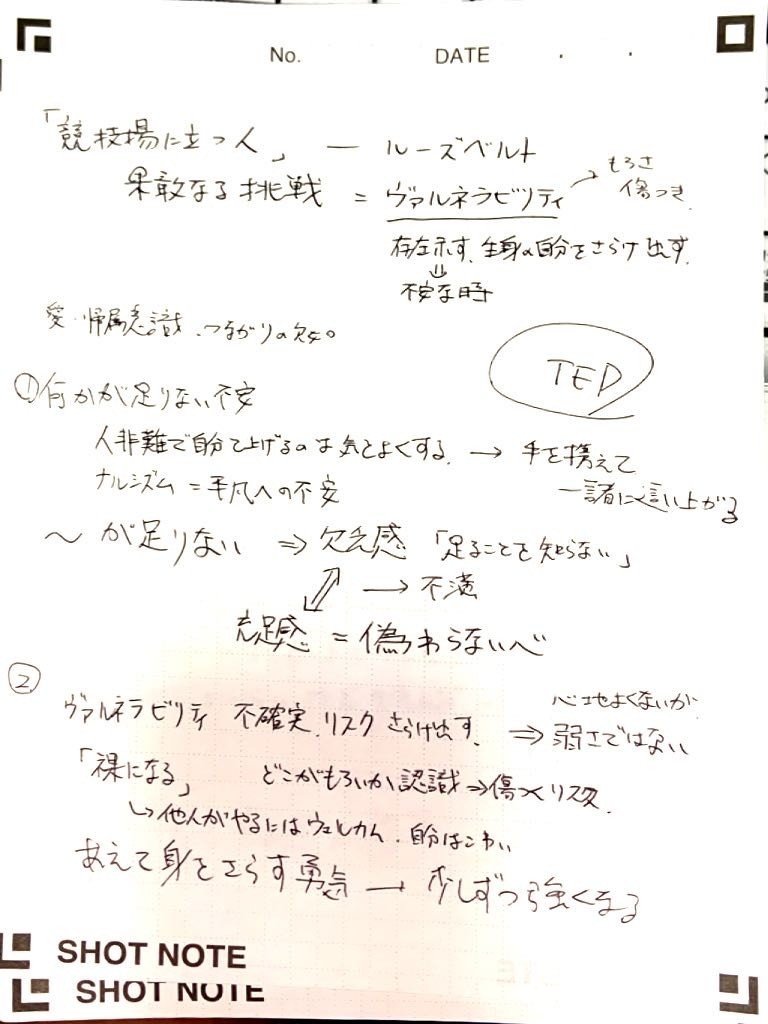 No. DATE . .
「競技場に立つ人」 — ルーズベルト
果敢なる挑戦 = ヴァルネラビリティ → もろさ
傷つき
存在示す、生身の自分をさらけ出す。
⇓
不安な時
愛・帰属意識、つながりの欠如。
TED
①何かが足りない不安
人非難で自分て上げるのは気もとよくする。 → 手を携えて
一諸に這い上がる
ナルシズム = 平凡への不安
〜が足りない ⇒ 欠乏感 「足ることを知らない」
→ 不満
充足感 = 偽わらない心
②
ヴァルネラビリティ 不確実、リスク さらけ出す。 ⇒ 弱さではない
心地よくないが
「裸になる」 どこがもろいか認識 ⇒ 傷つくリスク.
↳ 他人がやるにはウェルカム、自分はこわい
あえて身をさらす勇気 → 少しずつ強くなる
SHOT NOTE
SHOT NOTE